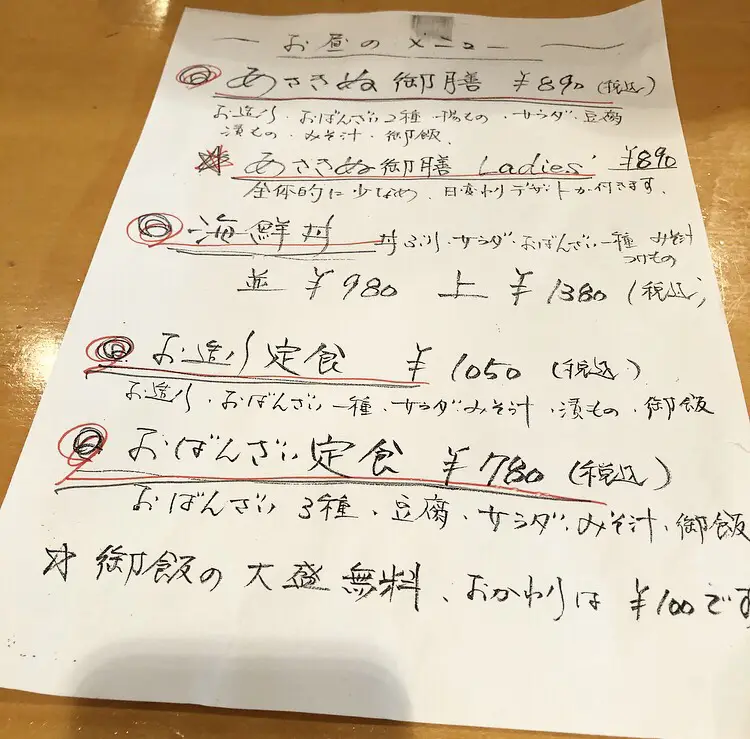 お昼のメニュー
あさきぬ御膳 ¥890 (税込)
お造り・おばんざい2種・揚もの・サラダ・豆腐
漬もの・みそ汁・御飯、
あさきぬ御膳 Ladies' ¥890
全体的に少なめ、日変わりデザートが付きます、
海鮮丼 丼ぶり・サラダ・おばんざい一種 みそ汁
つけもの
並 ¥980 上 ¥1380 (税込)
お造り定食 ¥1050 (税込)
お造り・おばんざい一種・サラダ・みそ汁・漬もの・御飯
おばんざい定食 ¥780 (税込)
おばんざい3種、豆腐、サラダ・みそ汁、御飯
☆御飯の大盛無料、おかわりは¥100です